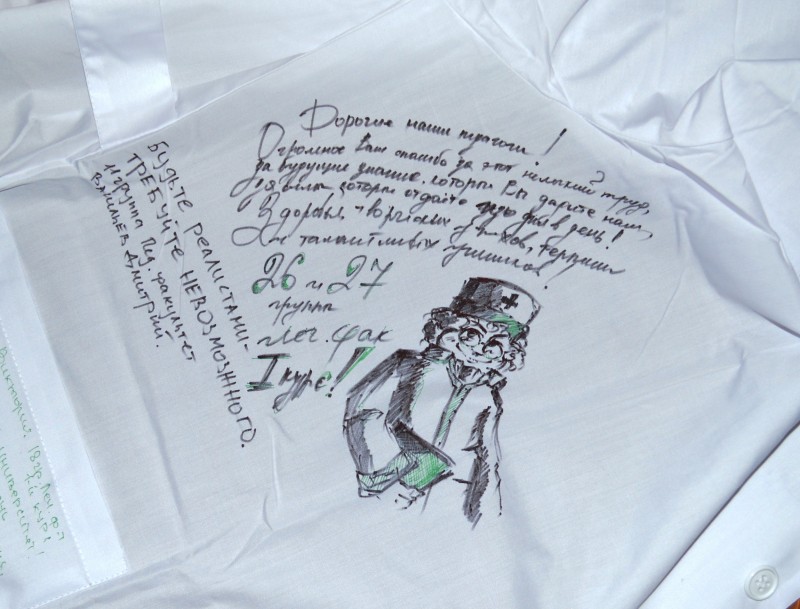 Дорогие наши педагоги!
Огромное Вам спасибо за этот нелегкий труд,
за будущие знания, которые Вы дарите нам,
за силы, которые отдаёте изо дня в день!
Здоровья, творческих успехов, терпения
и талантливых учеников!
26 и 27
группа
леч. фак
I курс!
БУДЬТЕ РЕАЛИСТАМИ-
ТРЕБУЙТЕ НЕВОЗМОЖНОГО.
11 группа Пед. факультет
Васильев Дмитрий.